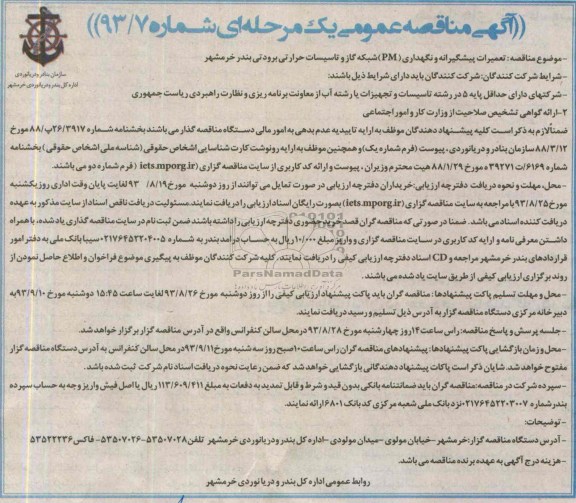 ((آگهی مناقصه عمومی یک مرحله‌ای شماره ۹۳/۷))
سازمان بنادر و دریانوردی
اداره کل بندر و دریانوردی خرمشهر
-موضوع مناقصه: تعمیرات پیشگیرانه و نگهداری (PM) شبکه گاز و تاسیسات حرارتی برودتی بندر خرمشهر
-شرایط شرکت کنندگان: شرکت کنندگان باید دارای شرایط ذیل باشند:
-شرکتهای دارای حداقل پایه ۵ در رشته تاسیسات و تجهیزات یا رشته آب از معاونت برنامه ریزی و نظارت راهبردی ریاست جمهوری
۲-ارائه گواهی تشخیص صلاحیت از وزارت کار و امور اجتماعی
ضمناً لازم به ذکر است کلیه پیشنهاد دهندگان موظف به ارایه تاییدیه عدم بدهی به امور مالی دستگاه مناقصه گذار می باشند بخشنامه شماره ۲۶/۳۹۱۷پ/۸۸ مورخ
۸۸/۳/۱۲ سازمان بنادر و دریانوردی، پیوست (فرم شماره یک) و همچنین موظف به ارایه رونوشت کارت شناسایی اشخاص حقوقی (شناسه ملی اشخاص حقوقی) بخشنامه
شماره ۶۱۶۹/ت ۳۹۲۷۱ ه مورخ ۸۸/۱/۲۹ هیت محترم وزیران، پیوست و ارائه کد کاربری از سایت مناقصه گزاری (iets.mporg.ir) فرم شماره دو می باشند.
-محل، مهلت و نحوه دریافت دفترچه ارزیابی: خریداران دفترچه ارزیابی در صورت تمایل می توانند از روز دوشنبه مورخ ۸/۱۹/ ۹۳ لغایت پایان وقت اداری روز یکشنبه
مورخ ۹۳/۸/۲۵ با مراجعه به سایت مناقصه گزاری (iets.mporg.ir) بصورت رایگان اسناد ارزیابی را دریافت نمایند. مسئولیت دریافت ناقص اسناد از سایت مذکور به عهده
دریافت کننده اسناد می باشد. ضمنا در صورتی که مناقصه گران قصد خرید حضوری دفترچه ارزیابی را داشته باشند ضمن ثبت نام در سایت مناقصه گذاری یاد شده، با همراه
داشتن معرفی نامه و ارایه کد کاربری در سایت مناقصه گزاری و واریز مبلغ ۱۰/۰۰۰ ریال به حساب درآمد بندر به شماره ۲۱۷۶۴۵۳۲۰۴۰۰۵ سیبا بانک ملی به دفتر امور
قراردادهای بندر خرمشهر مراجعه و CD اسناد دفترچه ارزیابی کیفی را دریافت نمایند. کلیه شرکت کنندگان موظف به پیگیری موضوع فراخوان و اطلاع حاصل نمودن از
روند برگزاری ارزیابی کیفی از طریق سایت یاد شده می باشند.
-محل و مهلت تسلیم پاکت پیشنهادها: مناقصه گران باید پاکت پیشنهاد ارزیابی کیفی را از روز دوشنبه مورخ ۹۳/۸/۲۶ لغایت ساعت ۱۵:۴۵ دوشنبه مورخ ۹۳/۹/۱۰ به
دبیر خانه مرکزی دستگاه مناقصه گزار به آدرس ذیل تسلیم و رسید دریافت نمایند.
-جلسه پرسش و پاسخ مناقصه: راس ساعت ۱۴ روز چهارشنبه مورخ ۹۳/۸/۲۸ در محل سالن کنفرانس واقع در آدرس مناقصه گزار برگزار خواهد شد.
-محل و زمان بازگشایی پاکت پیشنهادها: پیشنهادهای مناقصه گران راس ساعت ۱۰ صبح روز سه شنبه مورخ ۹۳/۹/۱۱ در محل سالن کنفرانس به آدرس دستگاه مناقصه گزار
مفتوح خواهد شد. شایان ذکر است پاکات پیشنهاد دهندگانی بازگشایی خواهد شد که ضمن رعایت نحوه دریافت اسناد نام شرکت ثبت شده باشد.
-سپرده شرکت در مناقصه: مناقصه گران باید ضمانتنامه بانکی بدون قید و شرط و قابل تمدید به دفعات به مبلغ ۱۱۳/۶۰۹/۴۱۱ ریال یا اصل فیش واریز وجه به حساب سپرده
بندر شماره ۲۱۷۶۴۵۲۲۰۳۰۰۷ نزد بانک ملی شعبه مرکزی کد بانک ۶۸۰۱ ارائه نمایند.
-توضیحات:
-آدرس دستگاه مناقصه گزار: خرمشهر -خیابان مولوی -میدان مولودی -اداره کل بندر و دریانوردی خرمشهر تلفن ۵۳۵۰۷۰۲۸-۵۳۵۰۷۰۲۶- فاکس ۵۳۵۲۲۲۳۶
-هزینه درج آگهی به عهده برنده مناقصه می باشد.
روابط عمومی اداره کل بندر و دریانوردی خرمشهر
ParsNamadData